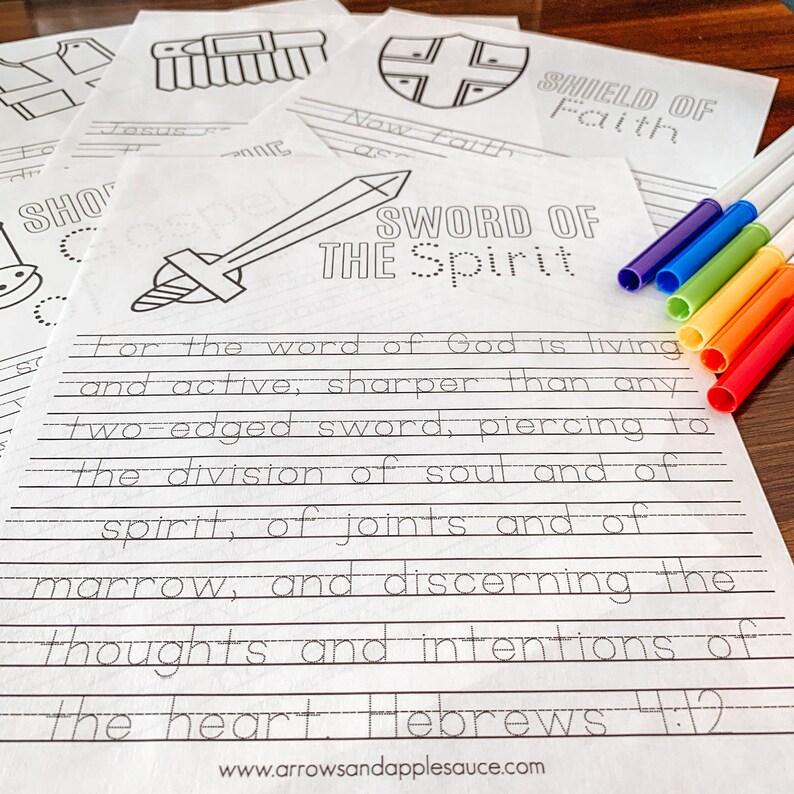 SHIELD OF
Faith
Now faith
Jesus
SHO
Gospel
of
SWORD OF
THE Spirit
For the word of God is living
and active, sharper than any
two-edged sword, piercing to
the division of soul and of
spirit, of joints and of
marrow, and discerning the
thoughts and intentions of
the heart. Hebrews 4:12
www.arrowsandapplesauce.com